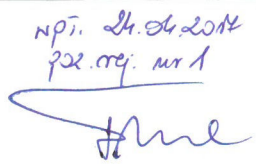 wpł. 24.04.2017
poz. rej. nr 1